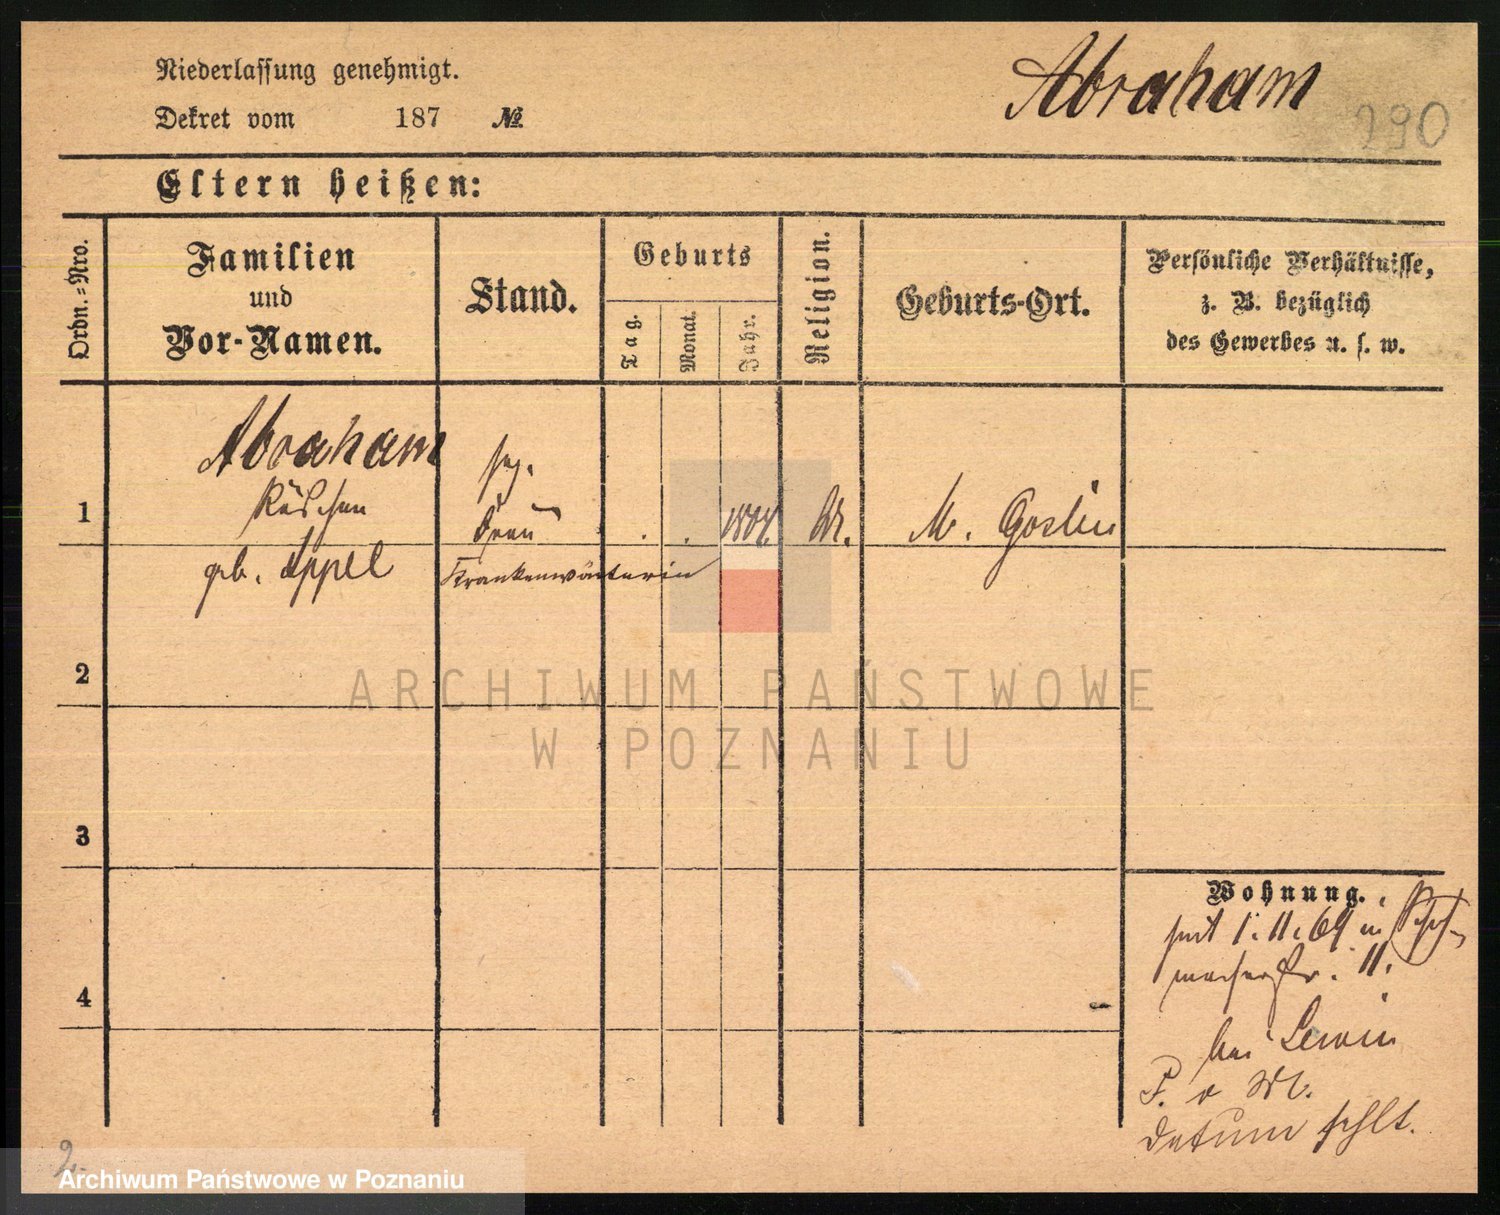 Niederlassung genehmigt.
Dekret vom 187 №
Abraham
290
Eltern heißen:
Ordn.-Nro.
Familien
und
Vor-Namen.
Stand.
Geburts
Tag.
Monat.
Jahr.
Religion.
Geburts-Ort.
Persönliche Verhältnisse,
z. B. bezüglich
des Gewerbes u. s. w.
1
Abraham
Röschen
geb. Appel
sep.
Frau
Krankenwärterin
M. Goslin
2
3
4
Wohnung.
seit 1.11.69 in
macherstr. 11.
bei Lewin
P. v M.
datum fehlt.
2.
ARCHIWUM PAŃSTWOWE
W POZNANIU
Archiwum Państwowe w Poznaniu